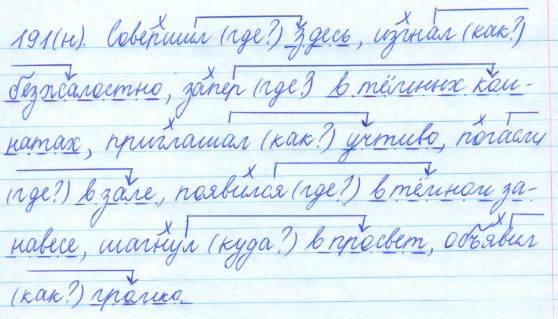 191(н). Совершил (где?) здесь, изгнал (как?)
безжалостно, запер (где?) в тёмных ком-
натах, приглашал (как?) учтиво, погасли
(где?) в зале, появился (где?) в тёмном за-
навесе, шагнул (куда?) в просвет, объявил
(как?) громко.